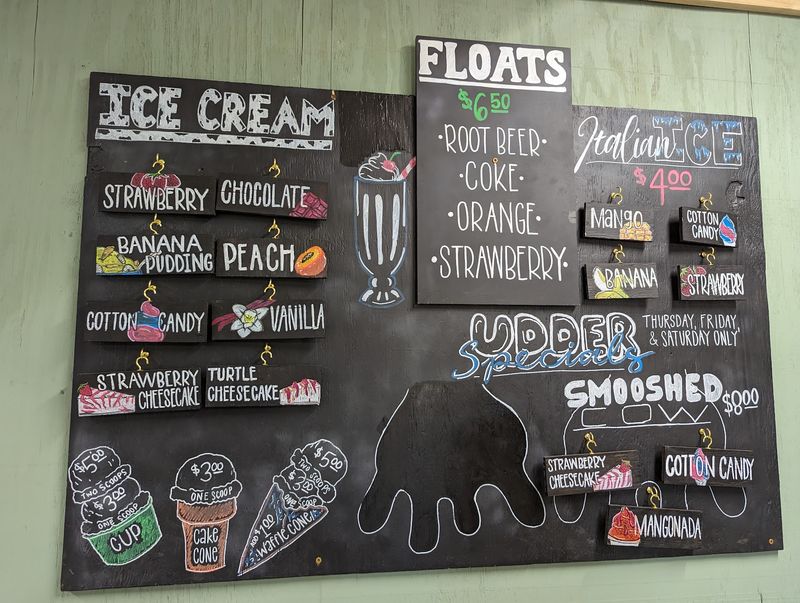 ICE CREAM
STRAWBERRY
CHOCOLATE
BANANA
PUDDING
PEACH
COTTON CANDY
VANILLA
STRAWBERRY
CHEESECAKE
TURTLE
CHEESECAKE
$5.00
TWO SCOOPS
$3.00
ONE SCOOP
CUP
$3.00
ONE SCOOP
CAKE
CONE
$5.00
TWO SCOOPS
$3.00
ONE SCOOP
ADD $1.00
WAFFLE CONE
FLOATS
$6.50
•ROOT BEER•
•COKE•
•ORANGE•
•STRAWBERRY•
Italian ICE
$4.00
MANGO
COTTON
CANDY
BANANA
STRAWBERRY
UDDER
Specials
THURSDAY, FRIDAY,
& SATURDAY ONLY
SMOOSHED
COW
$8.00
STRAWBERRY
CHEESECAKE
COTTON CANDY
MANGONADA